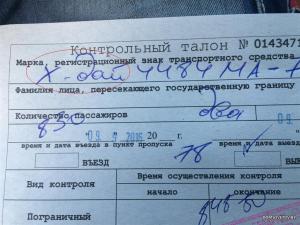 Контрольный талон № 0143471
Марка, регистрационный знак транспортного средства
Х-дай 4484 МА-
Фамилия лица, пересекающего государственную границу
два
Количество пассажиров
830 09 2016 20 г.
время и дата въезда в пункт пропуска
время и дата выезда
78
ВЪЕЗД
ВЫЕЗД
Время осуществления контроля
Вид контроля
начало
окончание
Пограничный